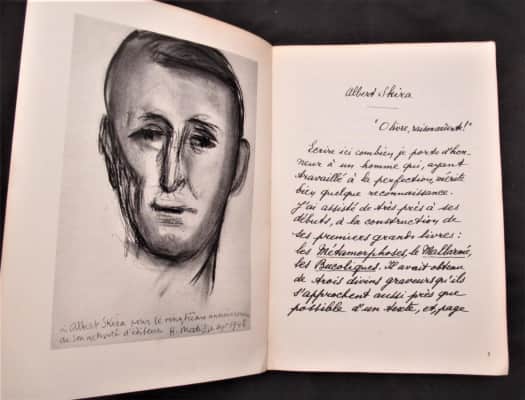 à Albert Skira pour le vingtième anniversaire
de son activité d'éditeur H. Matisse 1948
Albert Skira
"O livre,
Ecrire ici combien je porte d'hon-
neur à un homme qui, ayant
travaillé à la perfection, mérite
bien quelque reconnaissance.
J'ai assisté de très près à ses
débuts, à la construction de
ses premiers grands livres:
les Métamorphoses, le Mallarmé,
les Bucoliques. Il avait obtenu
de trois divins graveurs qu'ils
s'approchent aussi près que
possible d'un texte, et, page